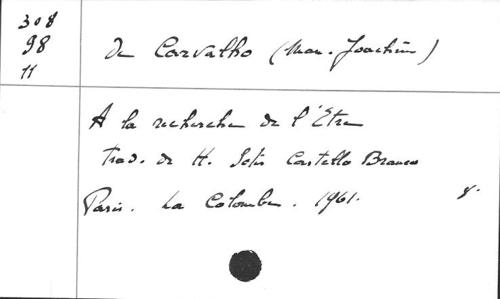 308
98
11
De Carvalho (Man. Joachim)
A la recherche de l'Etre
Trad. de H. Castello Branco
Paris. La Colombe. 1961. 8°